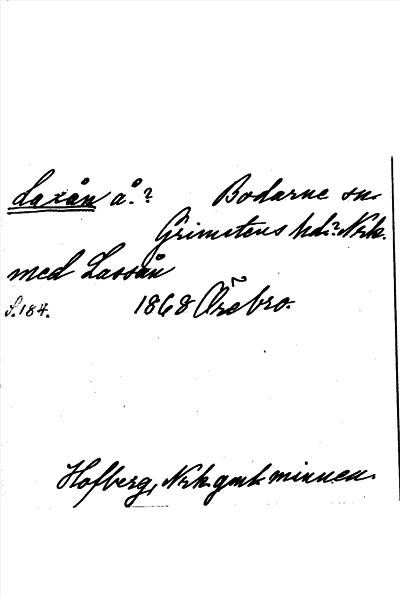 Laxån å.? Bodarne sn.
Grimstens hd? Nrk.
med Lassån
S.184. 1868 Örebro.
Hofberg, Nrk. gml. minnen.